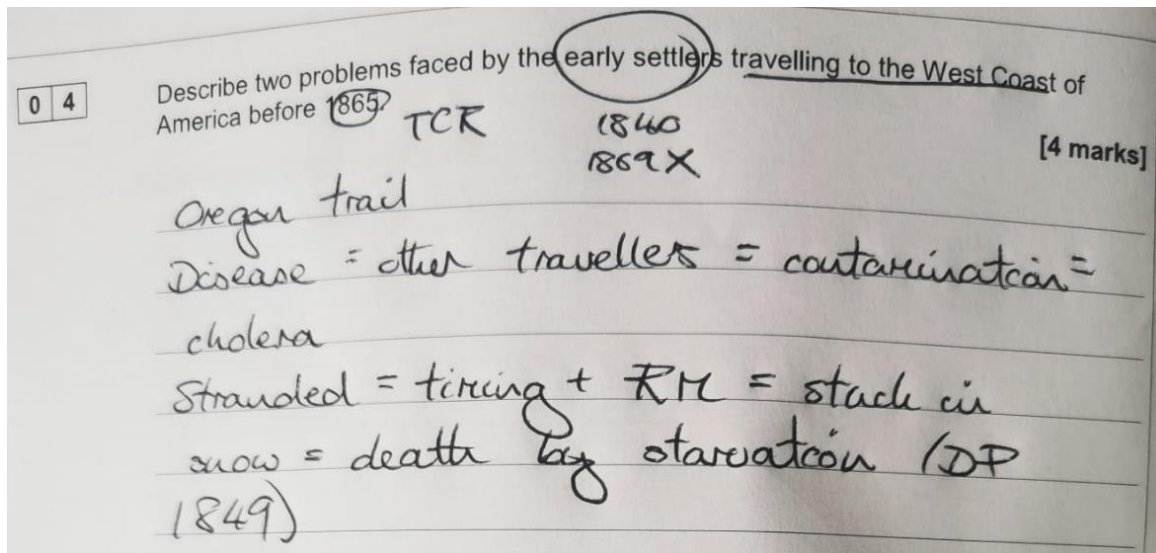 0 4
Describe two problems faced by the early settlers travelling to the West Coast of
America before 1865?
TCR
1840
1869 X
[4 marks]
Oregon trail
Disease = other travellers = contamination =
cholera
Stranded = timing + RM = stuck in
snow = death by starvation (DP
1849)